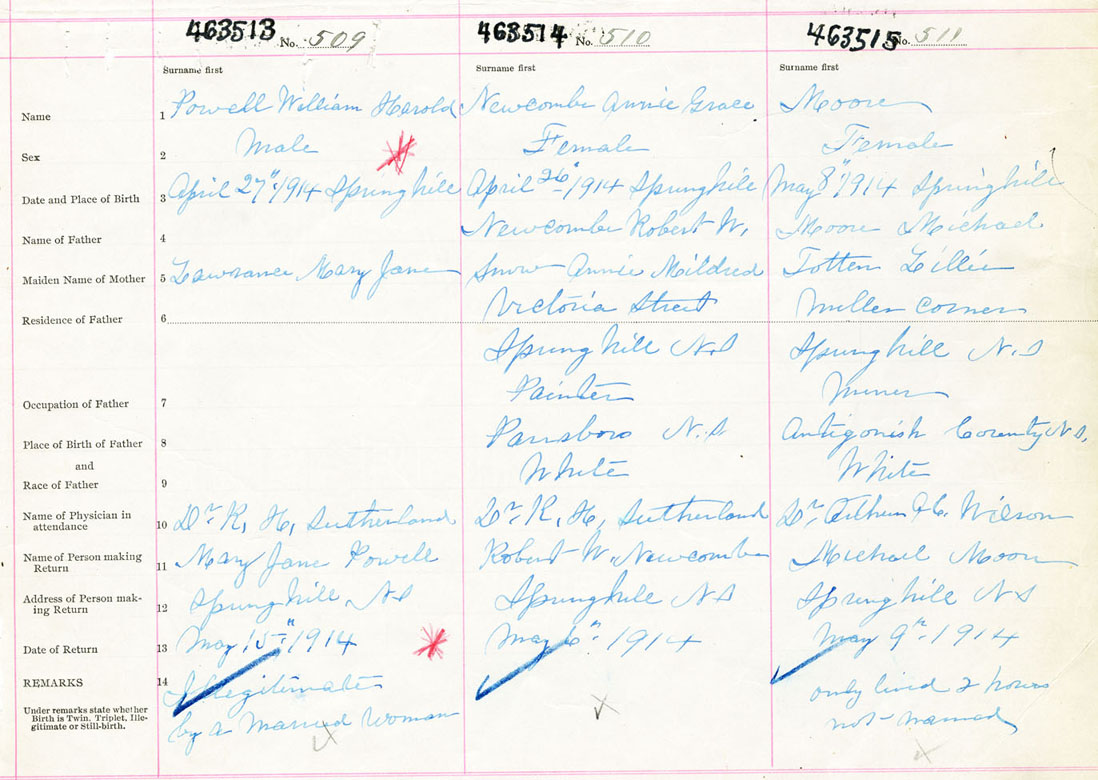 463513 No. 509 463514 No. 510 463515 No. 511
Surname first Surname first Surname first
Name 1 Powell William Harold Newcombe Annie Grace Moore
Sex 2 Male Female Female
Date and Place of Birth 3 April 27th 1914 Springhill April 26th 1914 Springhill May 8th 1914 Springhill
Name of Father 4 Newcombe Robert W. Moore Michael
Maiden Name of Mother 5 Lawrance Mary Jane Snow Annie Mildred Totten Lillie
Residence of Father 6 Victoria Street Miller Corner
Springhill N.S Springhill N.S
Occupation of Father 7 Painter Miner
Place of Birth of Father 8 Parrsboro N.S Antigonish County N.S.
and
Race of Father 9 White White
Name of Physician in
attendance 10 Dr. K. H. Sutherland Dr. K. H. Sutherland Dr. Wilson
Name of Person making
Return 11 Mary Jane Powell Robert W. Newcombe Michael Moore
Address of Person mak-
ing Return 12 Springhill NS Springhill NS Springhill NS
Date of Return 13 May 15th 1914 May 6th 1914 May 9th 1914
REMARKS 14 Illegitimate only lived 2 hours
Under remarks state whether
Birth is Twin, Triplet, Ille-
gitimate or Still-birth. by a Married Woman not named